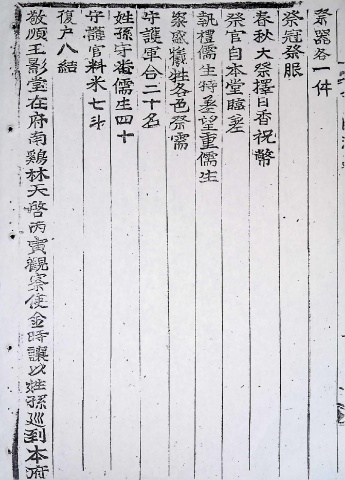 祭器各一件
祭冠祭服
春秋大祭擇日香祝幣
祭官自本堂臨差
執禮儒生特差望重儒生
粢盛犧牲各色祭需
守護軍合二十名
姓孫守齋儒生四十
守護官料米七斗
復戶八結
敬順王影堂在府南鷄林天啓丙寅觀察使金時讓以姓孫巡到本府